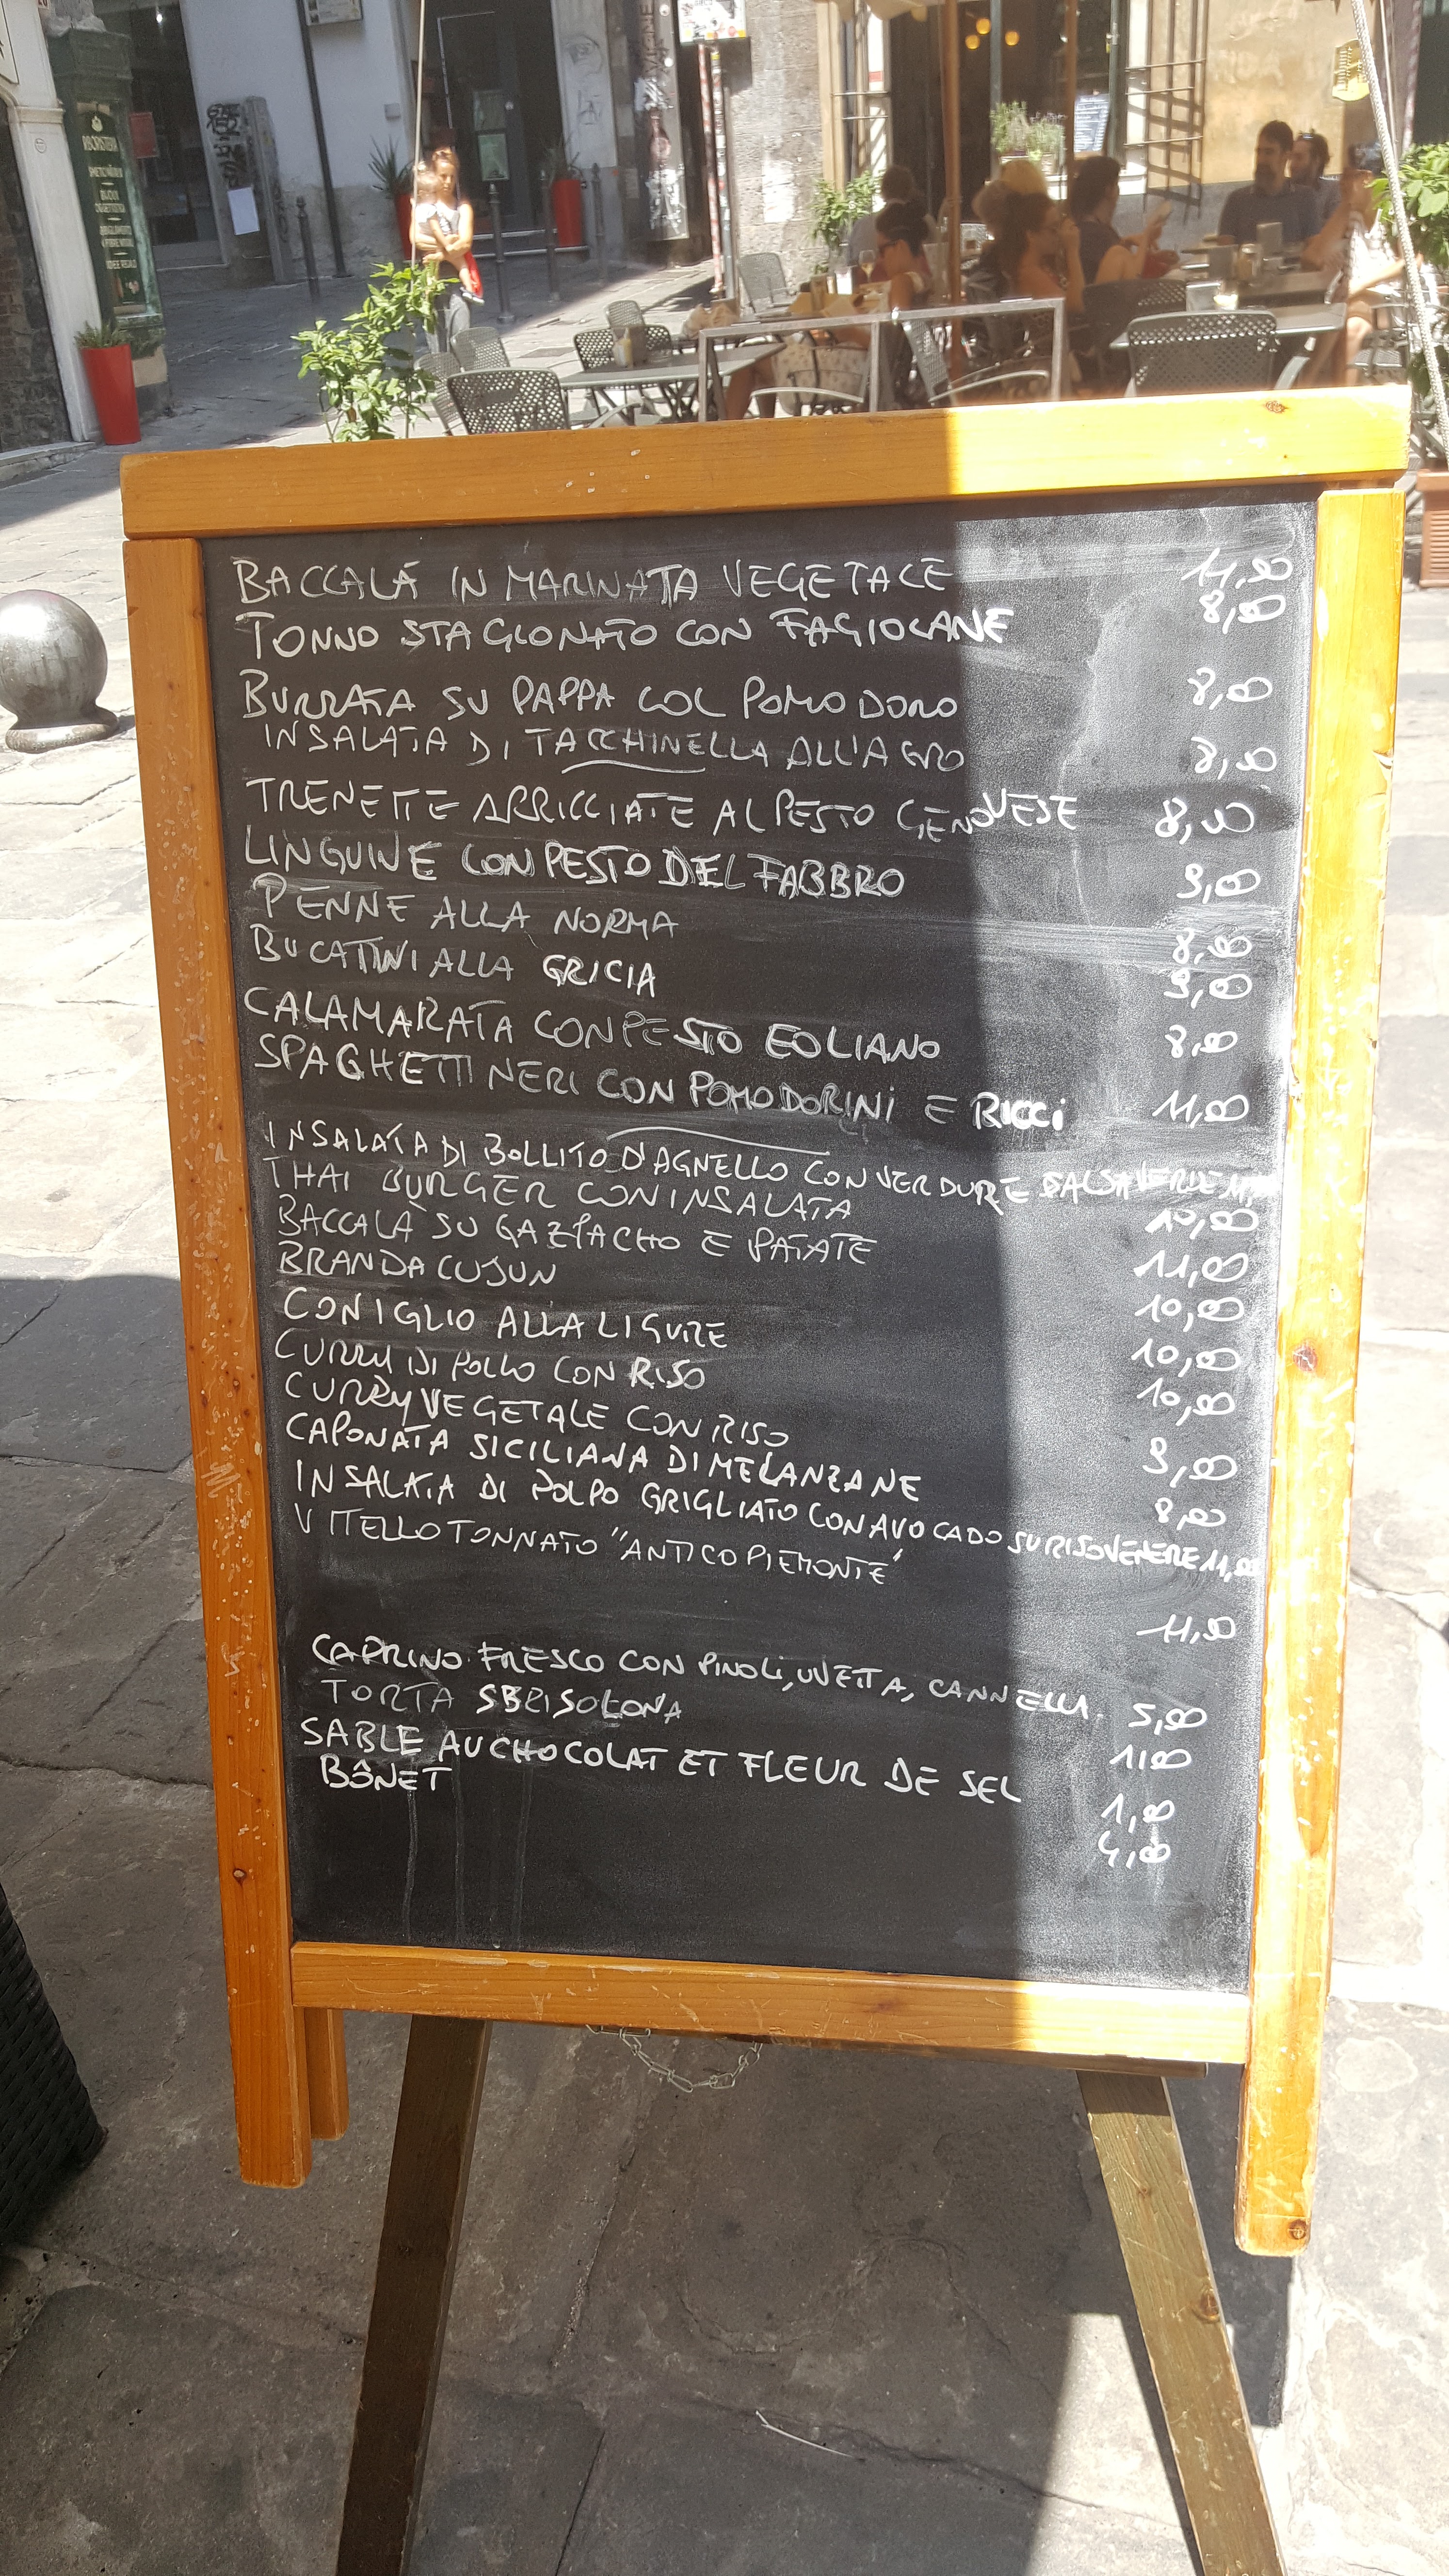 BACCALÁ IN MARINATA VEGETALE 11,00
TONNO STAGIONATO CON FAGIOLANE 8,00
BURRATA SU PAPPA COL POMODORO 8,00
INSALATA DI TACCHINELLA ALL'AGRO 8,00
TRENETTE ARRICCIATE AL PESTO GENOVESE 8,00
LINGUINE CON PESTO DEL FABBRO 9,00
PENNE ALLA NORMA 8,00
BUCATINI ALLA GRICIA 9,00
CALAMARATA CON PESTO EOLIANO 8,00
SPAGHETTI NERI CON POMODORINI E RICCI 11,00
INSALATA DI BOLLITO D'AGNELLO CON VERDURE SALSA VERDE
THAI BURGER CON INSALATA 10,00
BACCALÀ SU GAZPACHO E PATATE 11,00
BRANDACUJUN 10,00
CONIGLIO ALLA LIGURE 10,00
CURRY DI POLLO CON RISO 10,00
CURRY VEGETALE CON RISO 9,00
CAPONATA SICILIANA DI MELANZANE 8,00
INSALATA DI POLPO GRIGLIATO CON AVOCADO SU RISO VENERE 11,00
VITELLO TONNATO "ANTICO PIEMONTE" 11,00
CAPRINO FRESCO CON PINOLI, UVETTA, CANNELLA. 5,00
TORTA SBRISOLONA 1,00
SABLE AU CHOCOLAT ET FLEUR DE SEL 1,00
BÔNET 4,00